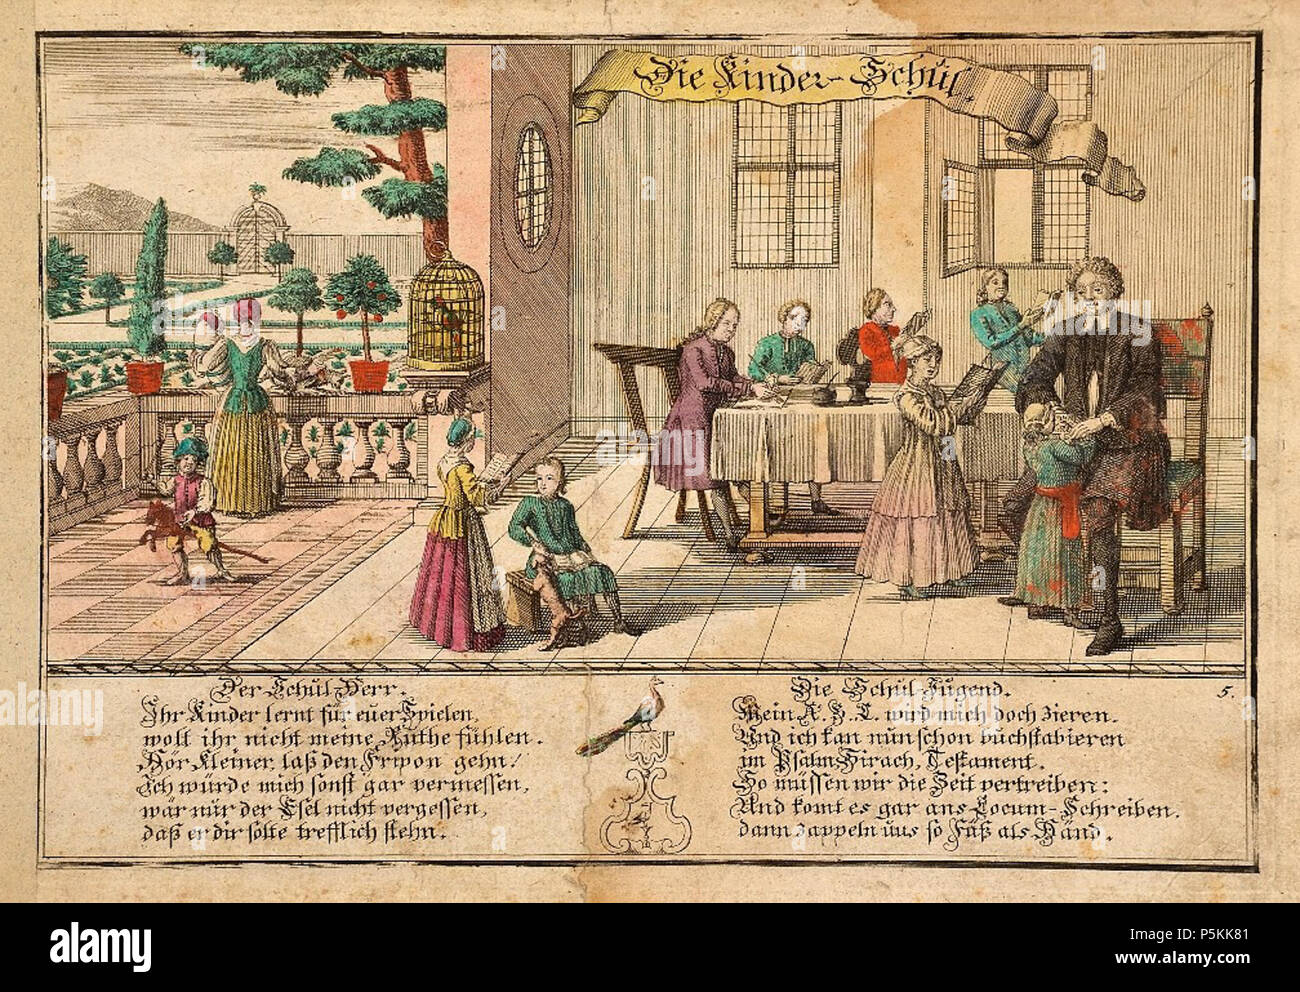 Die Kinder-Schul.
Der Schul Herr.
Ihr Kinder lernt für euer Spielen,
wolt ihr nicht meine Ruthe fühlen.
Hör Kleiner, laß den Fripon gehn!
Ich würde mich sonst gar vermessen,
wär nür der Esel nicht vergessen,
daß er dir solte trefflich stehn.
Die Schül-Jugend.
Mein A. B. C. wird mich doch zieren.
Und ich kan nün schon büchstabieren
im Psalm Sirach, Testament.
So müssen wir die Zeit vertreiben:
Und komt es gar ans Locum-Schreiben.
dann zappeln üns so Füß als Händ.
5.
alamy
alamy
Image ID: P5KK81
www.alamy.com